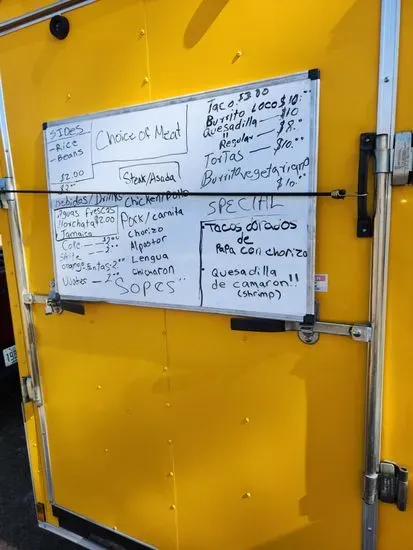 SIDES
- Rice
- Beans
$2.00
Bebidas/Drinks
Aguas frescas
Horchata $2.00
Jamaica
Coke
Choice of Meat
Steak/Asada
Chicken/Pollo
Pork/carnita
Chorizo
Al pastor
Lengua
Chicharon
SOPES
Taco $3.00
Burrito Loco $10.00
Quesadilla — $10
Regular — $8.00
Tortas — $10.00
Burrito vegetariano
$10.00
SPECIAL
Tacos dorados
de
Papa con chorizo
Quesadilla
de camaron!!
(shrimp)